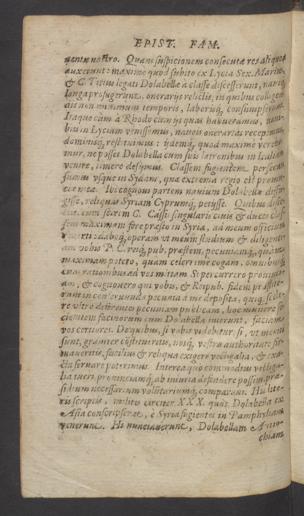 EPIST. FAM.
uentu nostro. Quam suspicionem consecuta res aliquot
auxerunt: maxime quod subito ex Lycia Sex. Marius,
& C. Titius legati Dolabellæ à classe discesserunt, naui
longa profugerunt, onerarijs relictis, in quibus colligen-
dis non minimum temporis, laborisq́; consumpserant.
Itaque cùm à Rhodo cum ijs quas habueramus, naui-
bus in Lyciam venissemus, naueis onerarias recepimus,
dominisq́; restituimus: ijdemq́; quod maxime vereba-
mur, ne posset Dolabella cum suis latronibus in Italiam
venire, timere desijmus. Classem fugientem persecuti
sumus vsque in Sydam, quæ extrema regio est prouin-
ciæ meæ. Ibi cognoui partem nauium Dolabellæ diffu-
gisse, reliquas Syriam Cyprumq́; petisse. Quibus
cum scirem C. Cassij singularis ciuis & ducis clas-
sem maximam fore præsto in Syria, ad meum officium
reuerti: daboq́; operam vt meum studium & diligentiam
vobis P. C. reiq́; pub. præstem, pecuniamq́; quam
maximam potero,
rationibus ad vos mittam. Si percurrero prouin-
ciam, & cognouero qui vobis, & Reipub. fidem præstite-
rint in conseruanda pecunia à me deposita,
vltro deferentes pecuniam publicam, hoc munere so-
cietatem facinorum cum Dolabella inierunt, faciam
vos certiores. De quibus, si vobis videbitur, si, vt meriti
sunt, grauiter constitueritis, nosq́; vestra authoritate fir-
maueritis, facilius & reliqua exigere vectigalia, & exa-
cta seruare poterimus. Interea quo commodius vectiga-
lia tueri prouinciamq́; ab iniuria defendere possim, præ-
sidium necessarium voluntariumq́; comparaui. His lite-
ris scriptis, milites circiter XXX. quos Dolabella ex
Asia conscripserat, è Syria fugientes in Pamphyliam
venerunt. Hi nunciauerunt, Dolabellam Antio-
chiam